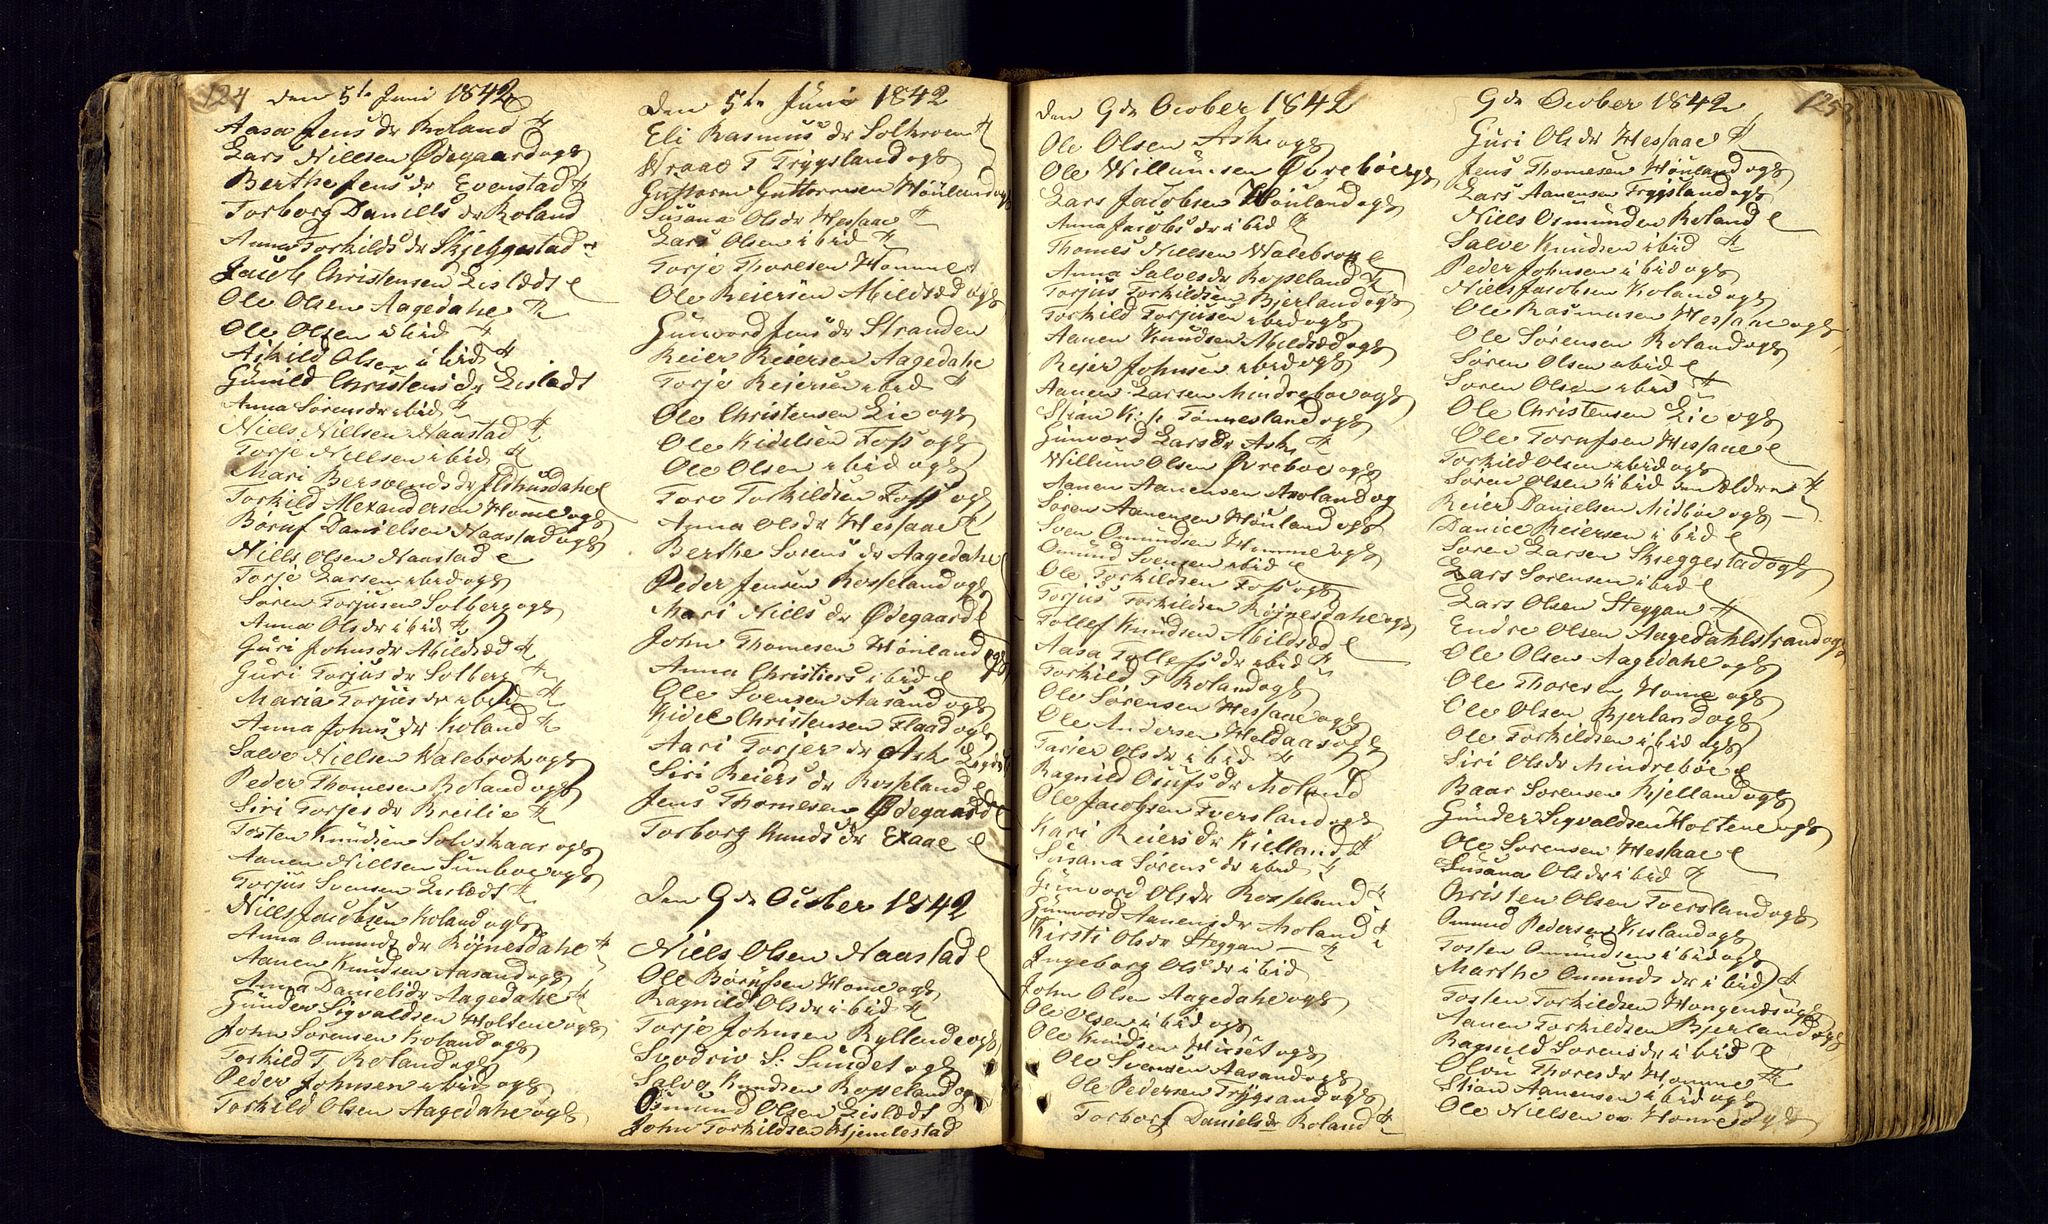 124
den 5te Juni 1842
Aasa Jens dr Roland
Lars Nillsen Ødegaard ogs
Berthe Jens dr Evenstad
Torborg Daniels dr Roland
Anna Torkilds dr Skjeggestad
Jacob Christensen Lislædt e
Ole Olsen Aagedahe
Ole Olsen ibid
Askild Olsen ibid
Gunild Christens dr Lislædt
Anna Sørensdr ibid
Niels Nillsen Naastad
Torje Nillsen ibid
Mari Bersvends dr Ildhusdahe e
Torkild Alexandersen Home ogs
Børuf Daniellsen Naastad ogs
Nills Olsen Naastad e
Torje Larsen ibid ogs
Søren Torjusen Solberg ogs
Anna Olsdr ibid
Guri Johnsdr Abildsæd
Guri Torjus dr Solberg
Maria Torjus dr ibid
Anna Johns dr Roland
Salve Nielsen Walebrok ogs
Peder Thomesen Roland ogs
Siri Torjes dr Breilie
Tosten Knudsen Solvskaar ogs
Aanen Nillsen Sumboe ogs
Torjus Svensen Lislædt
Nills Jacobsen Roland ogs
Anna Omunds dr Røjnesdahe
Aanen Knudsen Aasand ogs
Anna Danielsdr Aagedahe
Gunder Sigvaldsen Holtene ogs
John Sørensen Roland ogs
Torkild T Roland ogs
Peder Johnsen ibid ogs
Torkild Olsen Aagedahe ogs
Den 5te Juni 1842
Eli Rasmus dr Solhroen
Wraal T Trygsland ogs
Guttorm Guttormsen Hønland ogs
Susana Olsdr Hessaae
Lars Olsen ibid
Torje Thoresen Homme
Ole Reiersen Abildsæd ogs
Gunvord Jens dr Stranden
Reier Reiersen Aagedahe
Torje Reiersen ibid
Ole Christensen Lie ogs
Ole Kidelsen Foss ogs
Ole Olsen ibid ogs
Tore Torkildsen Foss ogs
Anna Olsdr Hessaae
Berthe Sorens dr Aagedahe
Peder Jensen Rosseland ogs
Mari Niels dr Ødegaard e
John Thomesen Hønland ogs
Anna Christiers ibid e
Ole Svensen Aasand ogs
Kidel Christensen Flaad ogs
Aari Torjer dr Ask
Siri Reiers dr Rosseland e
Jens Thomesen Ødegaard e
Torborg Knuds dr Exaae e
Den 9de Octber 1842
Niels Olsen Naastad e
Ole Børufsen Home ogs
Ragnild Olsdr ibid
Torje Johnsen Kyllende ogs
Svodriv S. Sundet ogs
Salve Knudsen Rosseland ogs
Omund Olsen Lislædt
John Torkildsen Hjemlestad
den 9de Ocober 1842
Ole Olsen Ask ogs
Ole Willumsen Øvrebøe ogs
Lars Jacobsen Hønland ogs
Anna Jacobs dr ibid
Thomes Nielsen Walebrok e
Anna Salvesdr Rosseland
Torjus Torkildsen Bjerland ogs
Torkild Torjusen ibid ogs
Aanen Knudsen Abildsæd ogs
Reier Johnsen ibid ogs
Aanen Larsen Mindreboe ogs
Stian K. Tønnesland ogs
Gunvord Larsdr Ask
Willum Olsen Øvreboe ogs
Aanen Aanensen Aroland og
Søren Aanensen Hønland ogs
Sven Omundsen Homme ogs
Omund Svensen ibid e
Ole Torkildsen Foss ogs
Torjus Torkildsen Røjnesdahe ogs
Tollef Knudsen Abildsæd e
Aasa Tollefs dr ibid
Torkild T Roland ogs
Ole Sørensen Hessaae ogs
Ole Andersen Heldaas ogs
Tarjer Olsdr ibid
Ragnild Olufs dr Moland
Ole Jacobsen Tversland ogs
Kari Reiers dr Kielland
Susana Sørens dr ibid
Gunvord Olsdr Rosseland
Gunvord Aanens dr Aroland
Kirsti Olsdr Steggan
Ingeborg Olsdr ibid
John Olsen Aagedahe ogs
Ole Olsen ibid ogs
Ole Knudsen ogs
Ole Svensen Aasand ogs
Ole Pedersen Trygsand ogs
Torborg Danielsdr Roland
125
9de Ocober 1842
Guri Olsdr Hessaae
Jens Thomesen Hønland ogs
Lars Aanensen Trygsland ogs
Niels Omunden Roland e
Salve Knudsen ibid
Peder Johnsen ibid ogs
Niels Jacobsen Roland ogs
Ole Rasmusen Hessaae ogs
Ole Sørensen Roland ogs
Søren Olsen ibid e
Soren Olsen ibid
Ole Christensen Lie ogs
Ole Torufsen Hessaae e
Torkild Olsen ibid ogs
Soren Olsen ibid den Ældre
Reier Danielsen Midboe ogs
Daniel Reiersen ibid e
Soren Larsen Skjeggestad ogs
Lars Sorensen ibid e
Lars Olsen Steggan
Endre Olsen Aagedahlstrand ogs
Ole Olsen Aagedahe ogs
Ole Thoresen Home ogs
Ole Olsen Bjerland ogs
Ole Torkildsen ibid ogs
Siri Olsdr Mindrebøe e
Baar Sorensen Kjelland ogs
Gunder Sigvaldsen Holtene ogs
Ole Sorensen Hessaae e
Susana Olsdr ibid
Christen Olsen Tversland ogs
Omund Pedersen Kusland ogs
Tosten Omundsen ibid ogs
Marthe Omunds dr ibid
Tosten Torkildsen Hongenæs ogs
Aanen Torkildsen Bjerland ogs
Ragnild Sorensdr ibid e
Olou Thoresdr Homme
Stian Aanensen ibid ogs
Ole Nielsen Homes ogs